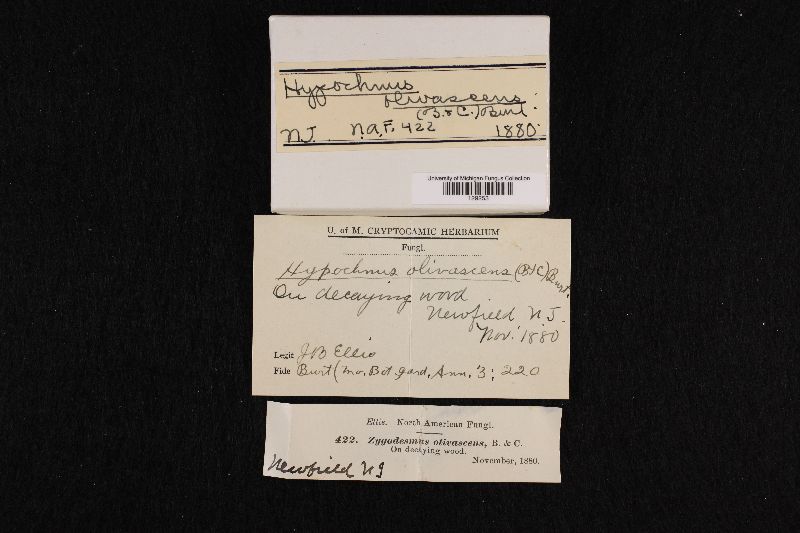 Hypochnus
olivascens
(B. & C.) Burt.
N.J. N.A.F. 422 1880.
University of Michigan Fungus Collection
U. of M. CRYPTOGAMIC HERBARIUM
Fungi.
Hypochnus olivascens (B&C) Burt.
On decaying wood.
Newfield N.J.
Nov. 1880
Legit J B Ellis
Fide Burt (Mo. Bot. Gard. Ann. 3: 220
Ellis. North American Fungi.
422. Zygodesmus olivascens, B. & C.
On decaying wood.
November, 1880.
Newfield NJ